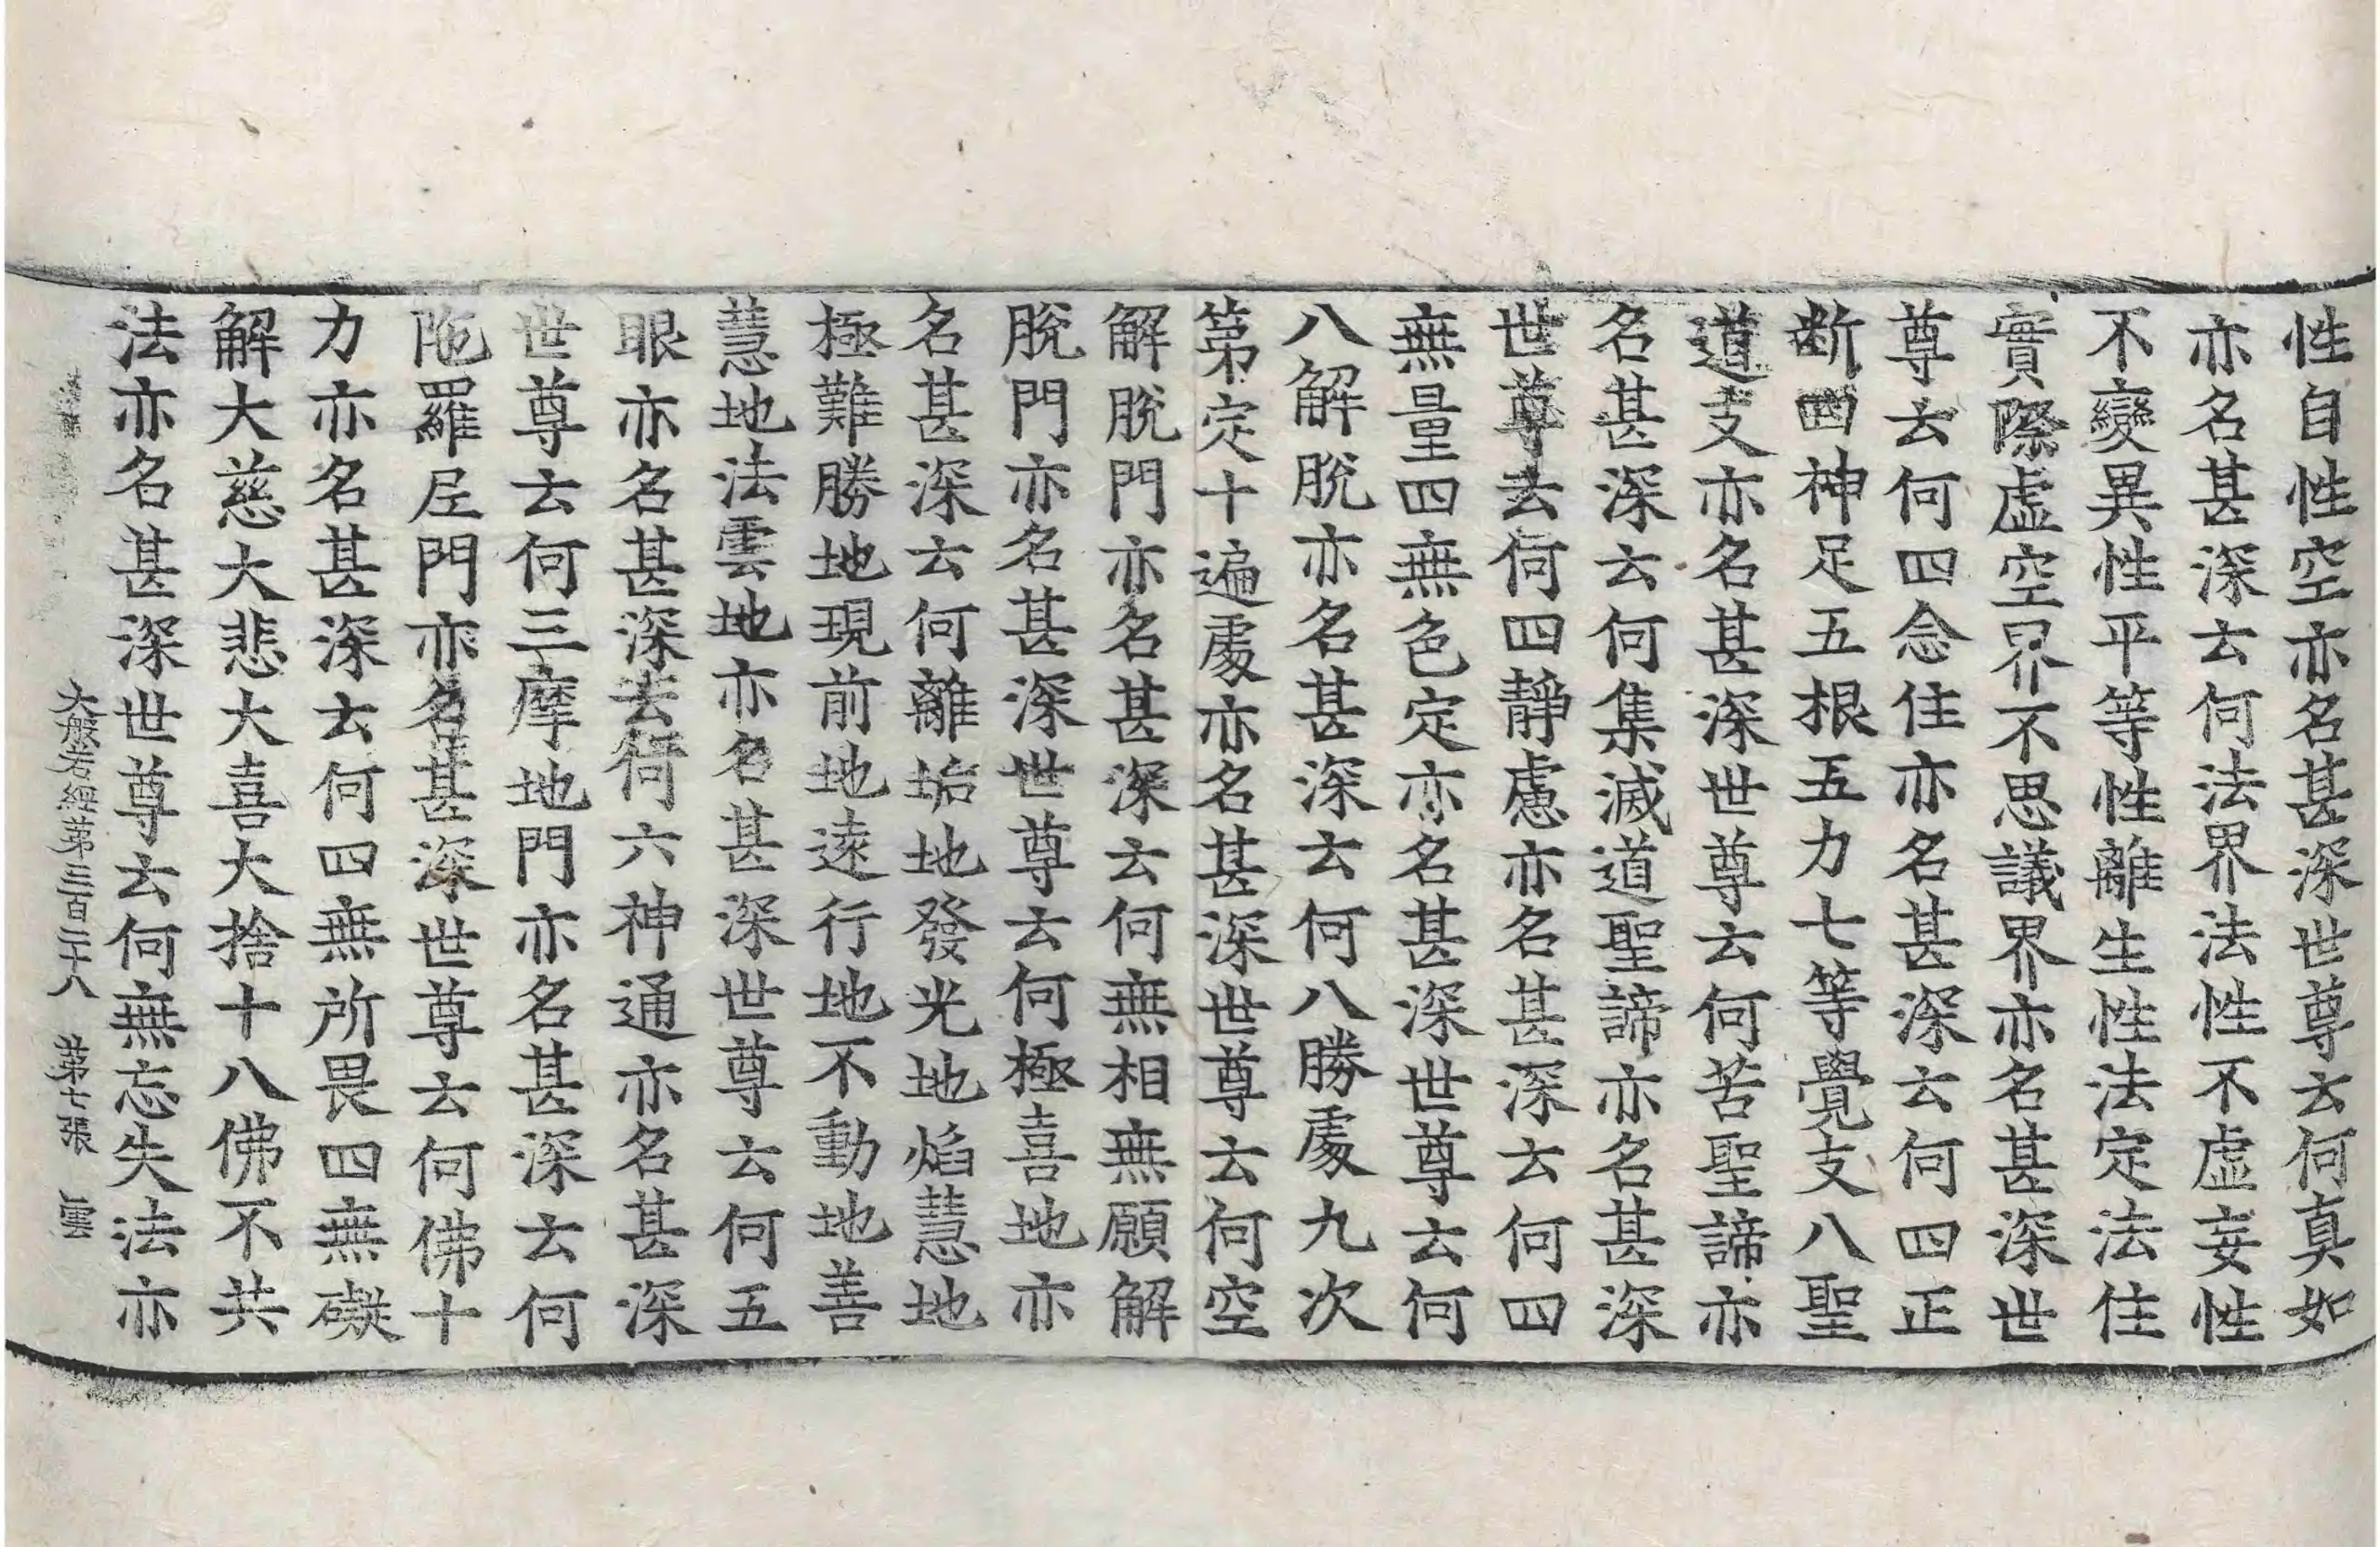 性自性空亦名甚深世尊云何真如
亦名甚深云何法界法性不虛妄性
不變異性平等性離生性法定法住
實際虛空界不思議界亦名甚深世
尊云何四念住亦名甚深云何四正
断四神足五根五力七等覺支八聖
道支亦名甚深世尊云何苦聖諦亦
名甚深云何集滅道聖諦亦名甚深
世尊云何四靜慮亦名甚深云何四
無量四無色定亦名甚深世尊云何
八解脫亦名甚深云何八勝處九次
第定十遍處亦名甚深世尊云何空
解脫門亦名甚深云何無相無願解
脫門亦名甚深世尊云何極喜地亦
名甚深云何離垢地發光地焰慧地
極難勝地現前地遠行地不動地善
慧地法雲地亦名甚深世尊云何五
眼亦名甚深云何六神通亦名甚深
世尊云何三摩地門亦名甚深云何
陁羅尼門亦名甚深世尊云何佛十
力亦名甚深云何四無所畏四無礙
解大慈大悲大喜大捨十八佛不共
法亦名甚深世尊云何無忘失法亦
大般若經第三百二十八 第七張 雲